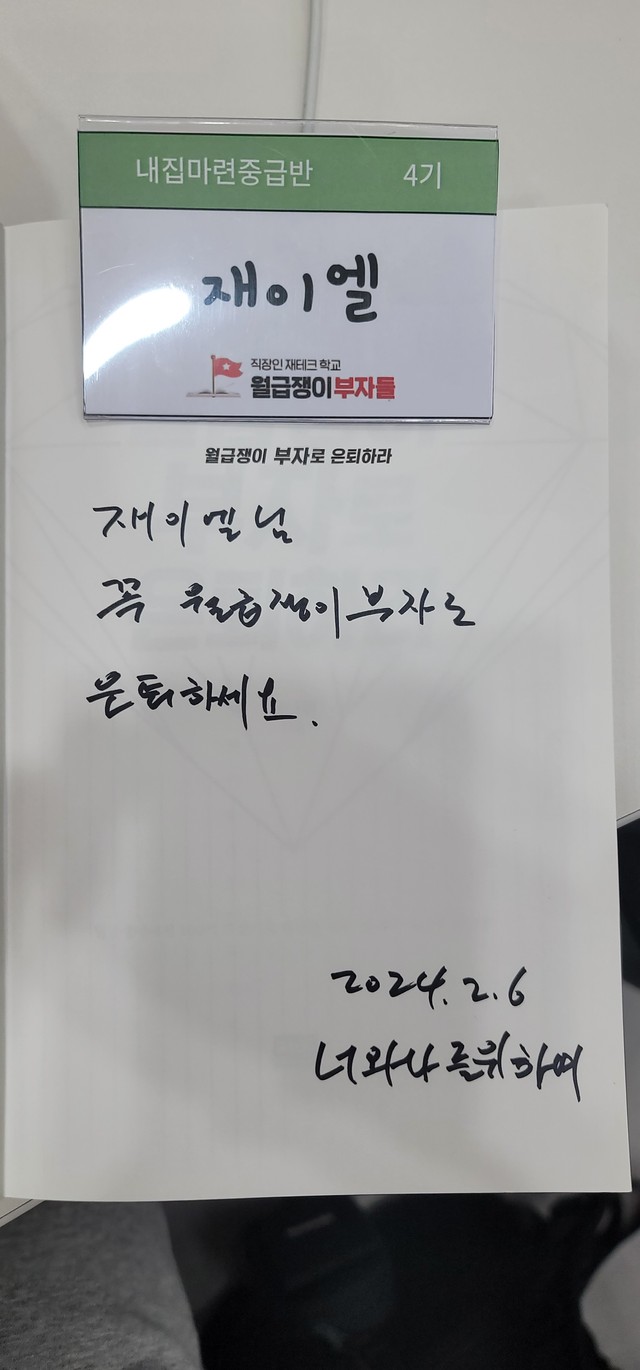 내집마련중급반 4기
재이엘
직장인 재테크 학교
월급쟁이부자들
월급쟁이 부자로 은퇴하라
재이엘님
꼭 월급쟁이부자로
은퇴하세요.
2024.2.6
너와나를위하여